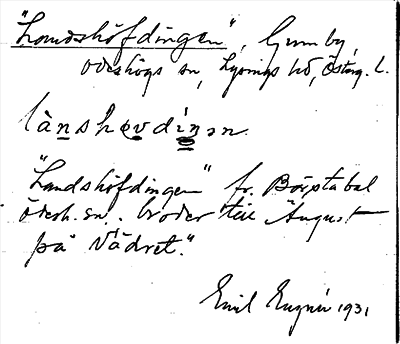 "Landshöfdingen", Gumby,
Ödeshögs sn, Lysings hd, Österg. l.
lànshøvdiŋən
"Landshöfdingen" fr. Börstabal
ödesh. sn. broder till "August
på Vädret."
Emil Engnér 1931